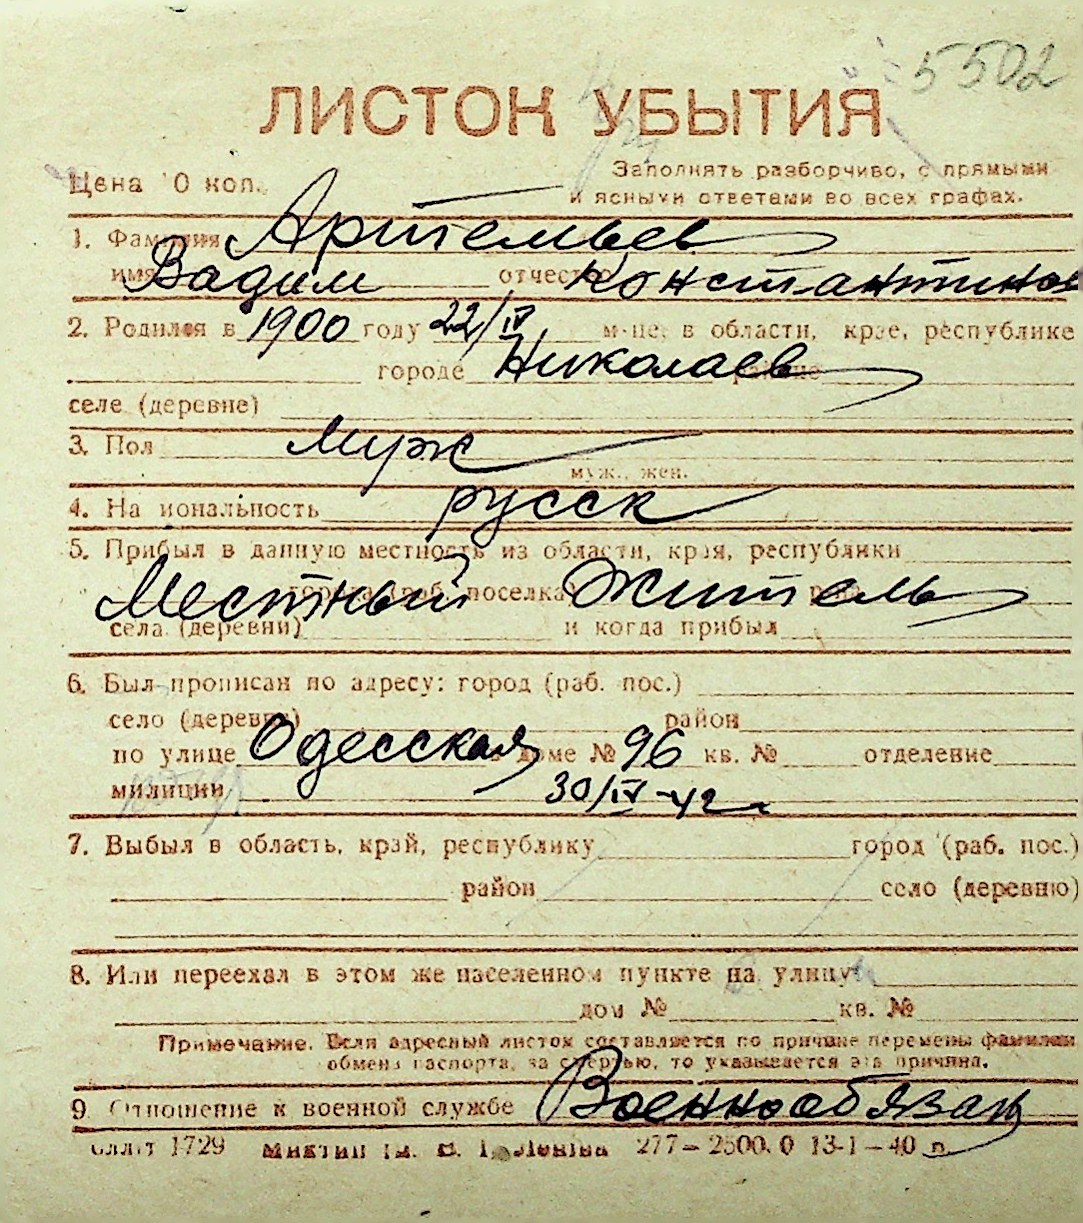 5502
ЛИСТОК УБЫТИЯ
Цена 10 коп. Заполнять разборчиво, с прямыми
и ясными ответами во всех графах.
1. Фамилия Артемьев
имя Вадим отчество Константинов
2. Родился в 1900 году 22/IV м-це, в области, крае, республике
городе Николаев районе
селе (деревне)
3. Пол муж
муж., жен.
4. Национальность русск
5. Прибыл в данную местность из области, края, республики
Местный житель
города (раб. поселка) р-на
села (деревни) и когда прибыл
6. Был прописан по адресу: город (раб. пос.)
село (деревня) район
по улице Одесская в доме № 96 кв. № отделение
милиции 30/IV-42г.
7. Выбыл в область, край, республику город (раб. пос.)
район село (деревню)
8. Или переехал в этом же населенном пункте на улицу
дом № кв. №
Примечание. Если адресный листок составляется по причине перемены фамилии
обмена паспорта, за смертью, то указывается эта причина.
9. Отношение к военной службе Военнообязан
1729 277-2500.0 13-1-40 г.